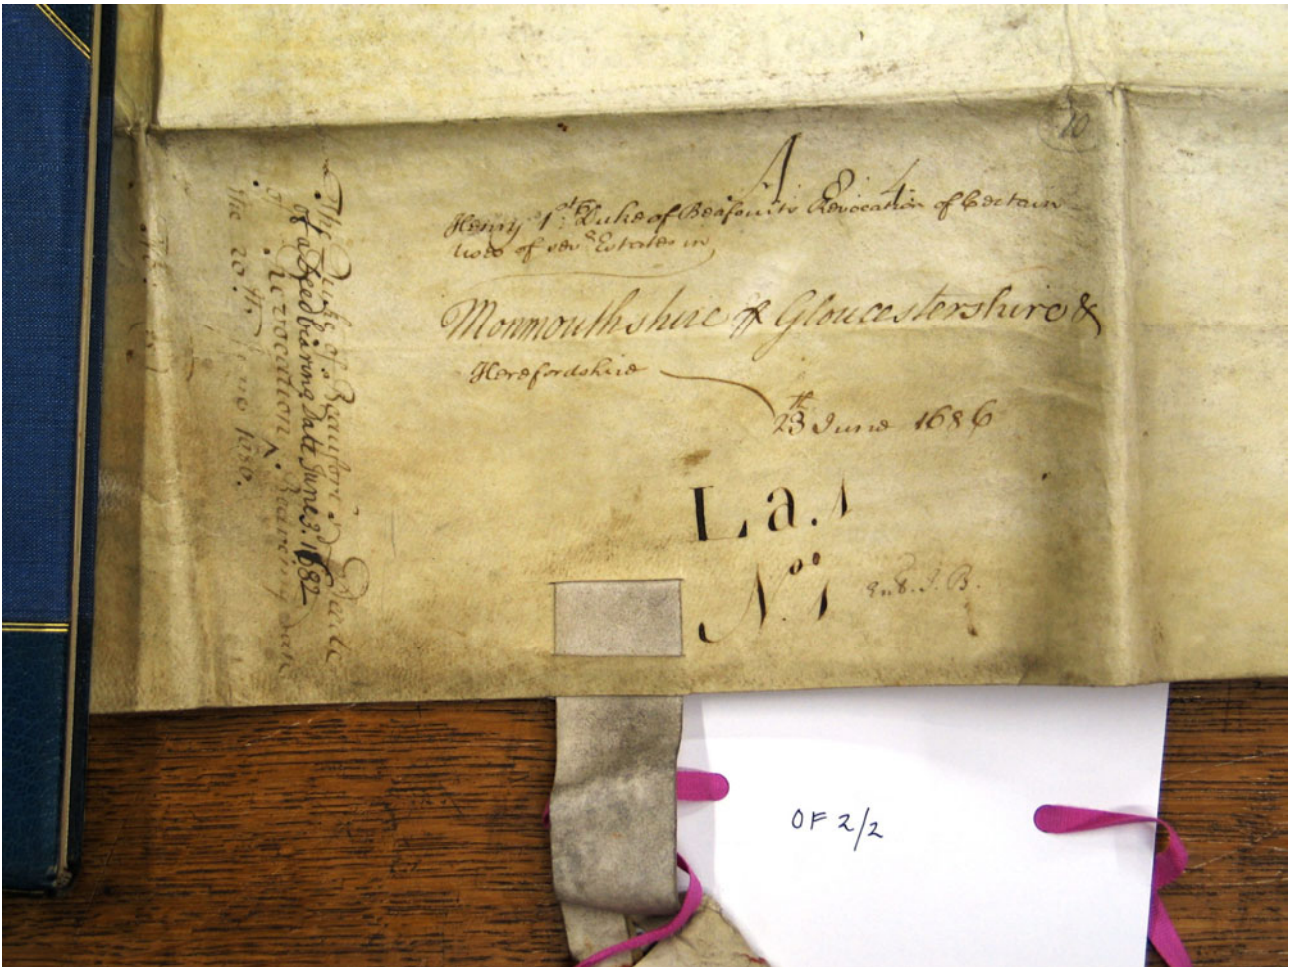 10
A
8 4
Henry 1st Duke of Beaforits Revocation of Certain
uses of sevl Estates in
Monmouthshire & Gloucestershire &
Herefordshire
23th June 1686
La. 1
No. 1
The Duke of Beaufort
of a Deed bearing Date June 3d. 1682
of Revocation, Beareing Date
the 20th. June 1680.
OF 2/2